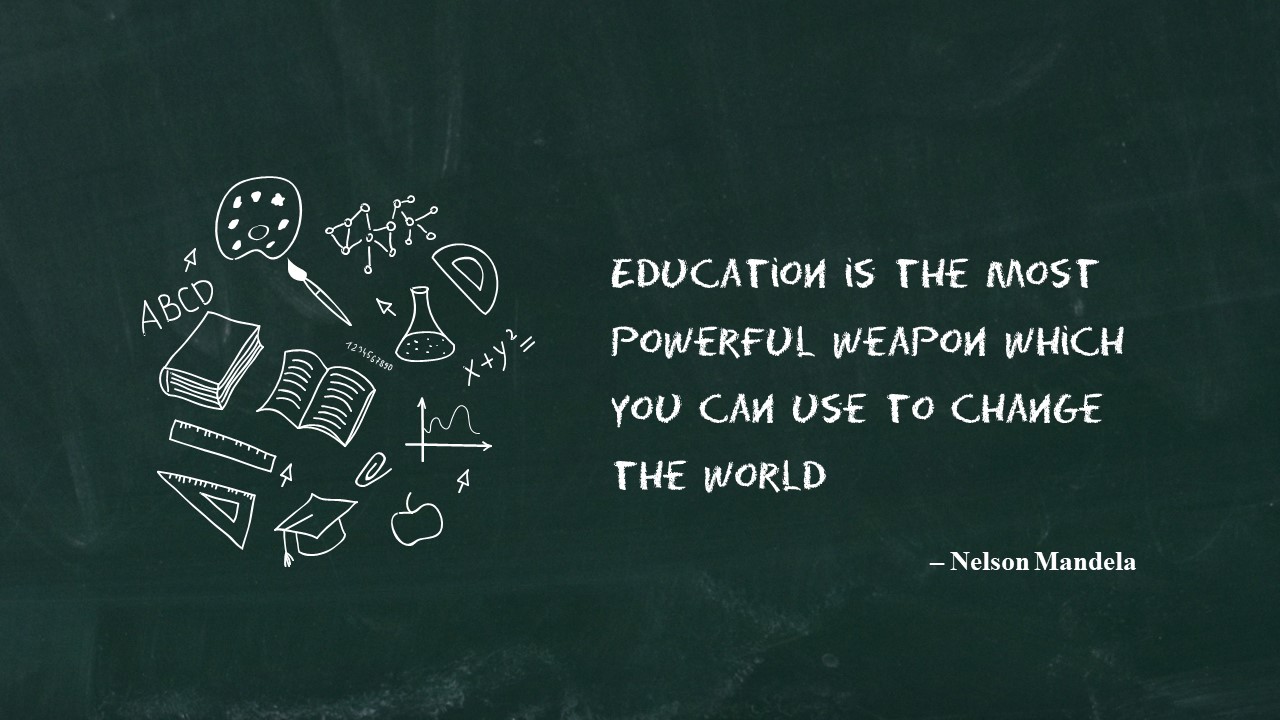 ABCD
1234567890
x+y²=
EDUCATiON iS THE MOST
POWERFUL WEAPON WHiCH
YOU CAN USE TO CHANGE
THE WORLD
– Nelson Mandela